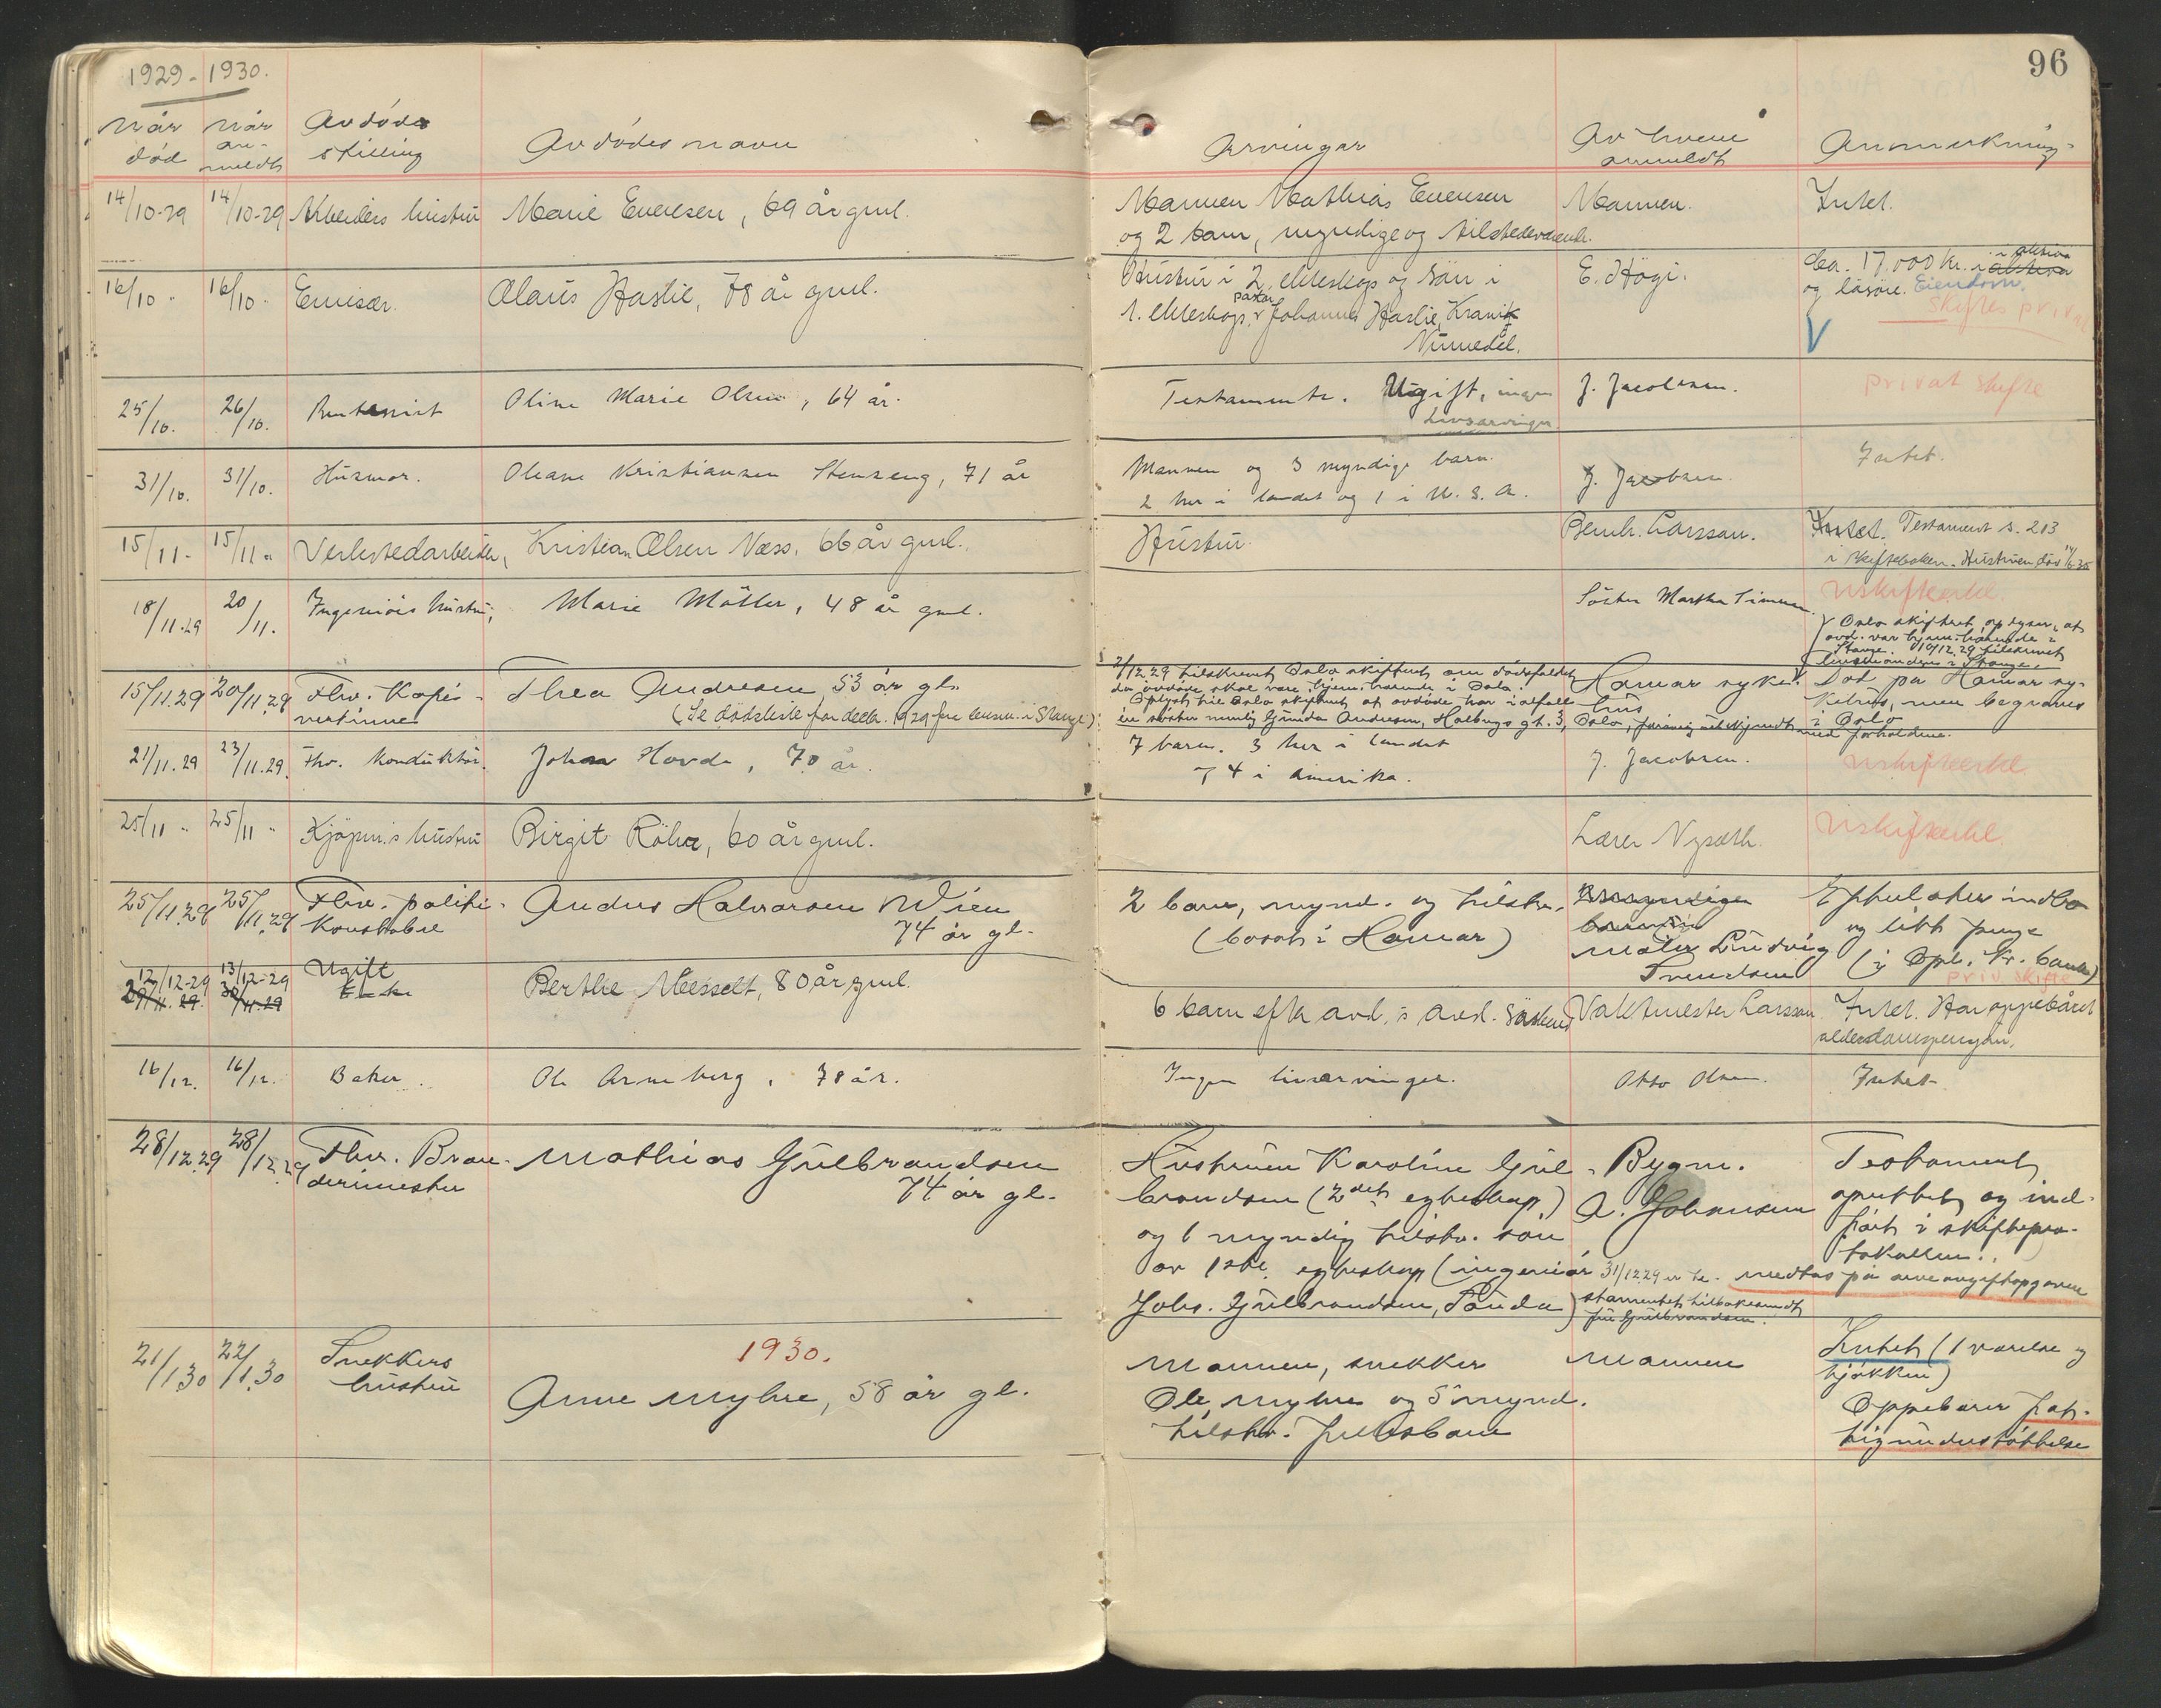 1929 - 1930.
96
Når død
Når anmeldt
Avdødes stilling
Avdødes navn
Arvinger
Av hvem anmeldt
Anmerkning
14/10-29 14/10-29 Arbeiders hustru Marie Evensen, 69 år gml.
Mannen Mathias Evensen Mannen. Intet.
og 2 barn, myndige og tilstedeværende.
16/10 - 16/10 - Emisær. Olaus Haslie, 78 år gml.
Hustru i 2. ekteskap og sön i E. Högi. Ca. 17.000 kr. i aktiva
1. ekteskap, pastor Johannes Haslie, og lösöre. Eiendom.
Numedal. Skiftes privat
V
25/10. 26/10. Oline Marie Olsen, 64 år.
Testamente. Ugift, ingen J. Jacobsen. privat skifte
Livsarvinger.
31/10. 31/10. Husmor. Oleane Kristiansen Stenseng, 71 år
Mannen og 3 myndige barn. J. Jacobsen. Intet.
2 her i landet og 1 i U.S.A.
15/11 - 15/11 - Verkstedarbeider, Kristian Olsen Næss, 66 år gml.
Hustru. Bernh. Larsson. Intet. Testament s. 213
i skifteboken. Hustruen död
18/11-29 20/11. Ingeniörs hustru, Marie Möller, 48 år gml.
Söster Martha Uskifteerkl.
Oslo skifteret oplyser, at
avd. var hjemmehörende i
Stange. 10/12.29 tilskrevet
lensmanden i Stange.
15/11.29 20/11.29 Fhv. Kafévertinne Thea Andresen 53 år gl.
(Se dödsliste for decbr. 1929 fra lensm. i Stange)
2/12.29 tilskrevet Oslo skifteret om dödsfaldet
da avdöde skal være hjemmehörende i Oslo.
Oplyst til Oslo skifteret at avdöde har iallfall
en söster nemlig Gunda Andresen, Holbergs gt. 3, Oslo,
Hamar sykehus Död på Hamar sykehus, men begraves i Oslo
med forholdene.
21/11.29 23/11.29. Fhv. Konduktör. Johan Hovde, 70 år.
7 barn. 3 her i landet J. Jacobsen. Uskifteerkl.
4 i Amerika.
25/11 - 25/11 - Kjöpm.s hustru Birgit Röhr, 60 år gml.
Lærer Nysæth. Uskifteerkl.
25/11.29 25/11.29 Fhv. politikonstabel Andres Halvorsen Wien
74 år gl.
2 barn, mynd. og tilstv.
(bosat i Hamar)
Maler Ludvig Svendsen
Efterlater indbo
og litt penge
(i Opl. Kr. bank)
priv. skifte
12/12-29 13/12-29 Ugift
29/11.29 30/11-29 Enke
Berthe Messelt, 80 år gml.
6 barn efter avd. avd. Vaktmester Larsson. Intet. Har oppebåret
alderdomspengar.
16/12. 16/12. Baker. Ole Arneberg, 78 år.
Ingen livsarvinger. Otto Olsen. Intet
28/12.29 28/12.29 Fhv. Brandermester Mathias Gulbrandsen
74 år gl.
Hustruen Karoline Gulbrandsen (2det egteskap)
og 1 myndig tilstv. sön
av 1ste egteskap (ingeniör
Johs. Gulbrandsen, Sauda)
Bygm.
A. Johansen
Testament
oprettet og indfört i skifteprotokollen.
31/12.29 er testamentet tilbakesendt
fru Gulbrandsen.
medtas på arveavgiftopgaven
1930.
21/1.30 22/1.30 Snekkers hustru Anne Myhre, 58 år gl.
Mannen, snekker Mannen Intet (1 værelse og
Ole Myhre og 5 mynd. kjökken)
tilstv. fellesbarn Oppebærer fattigunderstöttelse